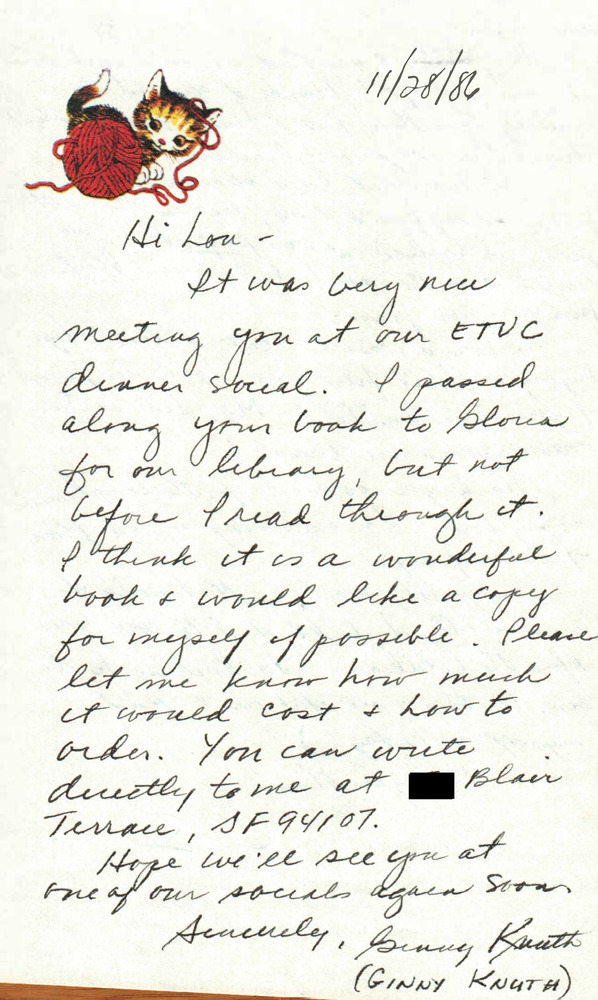 11/28/86
Hi Lou -
It was very nice
meeting you at our ETVC
dinner social. I passed
along your book to Gloria
for our library, but not
before I read through it.
I think it is a wonderful
book & would like a copy
for myself if possible. Please
let me know how much
it would cost & how to
order. You can write
directly to me at Blair
Terrace, SF 94107.
Hope we'll see you at
one of our socials again soon
Sincerely, Ginny Knuth
(GINNY KNUTH)